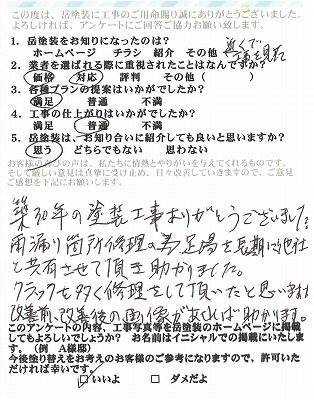 この度は、岳塗装に工事のご用命賜り誠にありがとうございました。
よければ、アンケートにご回答ご協力お願い致します。
1. 岳塗装をお知りになったのは？
ホームページ　チラシ　紹介　その他　近くで
工事を見た
2. 業者を選ばれる際に重視されたことはなんですか？
価格　対応　評判　その他（
3. 各種プランの提案はいかがでしたか？
満足　普通　不満
4. 工事の仕上がりはいかがでしたか？
満足　普通　不満
5. 岳塗装は、お知り合いに紹介しても良いと思いますか？
思う　どちらでもない　思わない
お客様の喜びの声は、私たちに情熱とやりがいを与えてくれるものです。
そして厳しい意見は真摯に受け止め、日々改善していきますので、ご意見
ご感想を下記にお願いします。
築30年の塗装工事ありがとうございました
雨漏り箇所修理の為足場を長期に他社
と共有させて頂き助かりました。
クラックを多く修理をして頂いたと思います
改善前、改善後の画像があれば助かります。
このアンケートの内容、工事写真等を岳塗装のホームページに掲載
してもよろしいでしょうか？　お名前はイニシャルでの掲載にいたしま
す。（例　A様邸）
今後塗り替えをお考えのお客様のご参考になりますので、許可いた
だければ幸いです。
□いいよ　□ ダメだよ